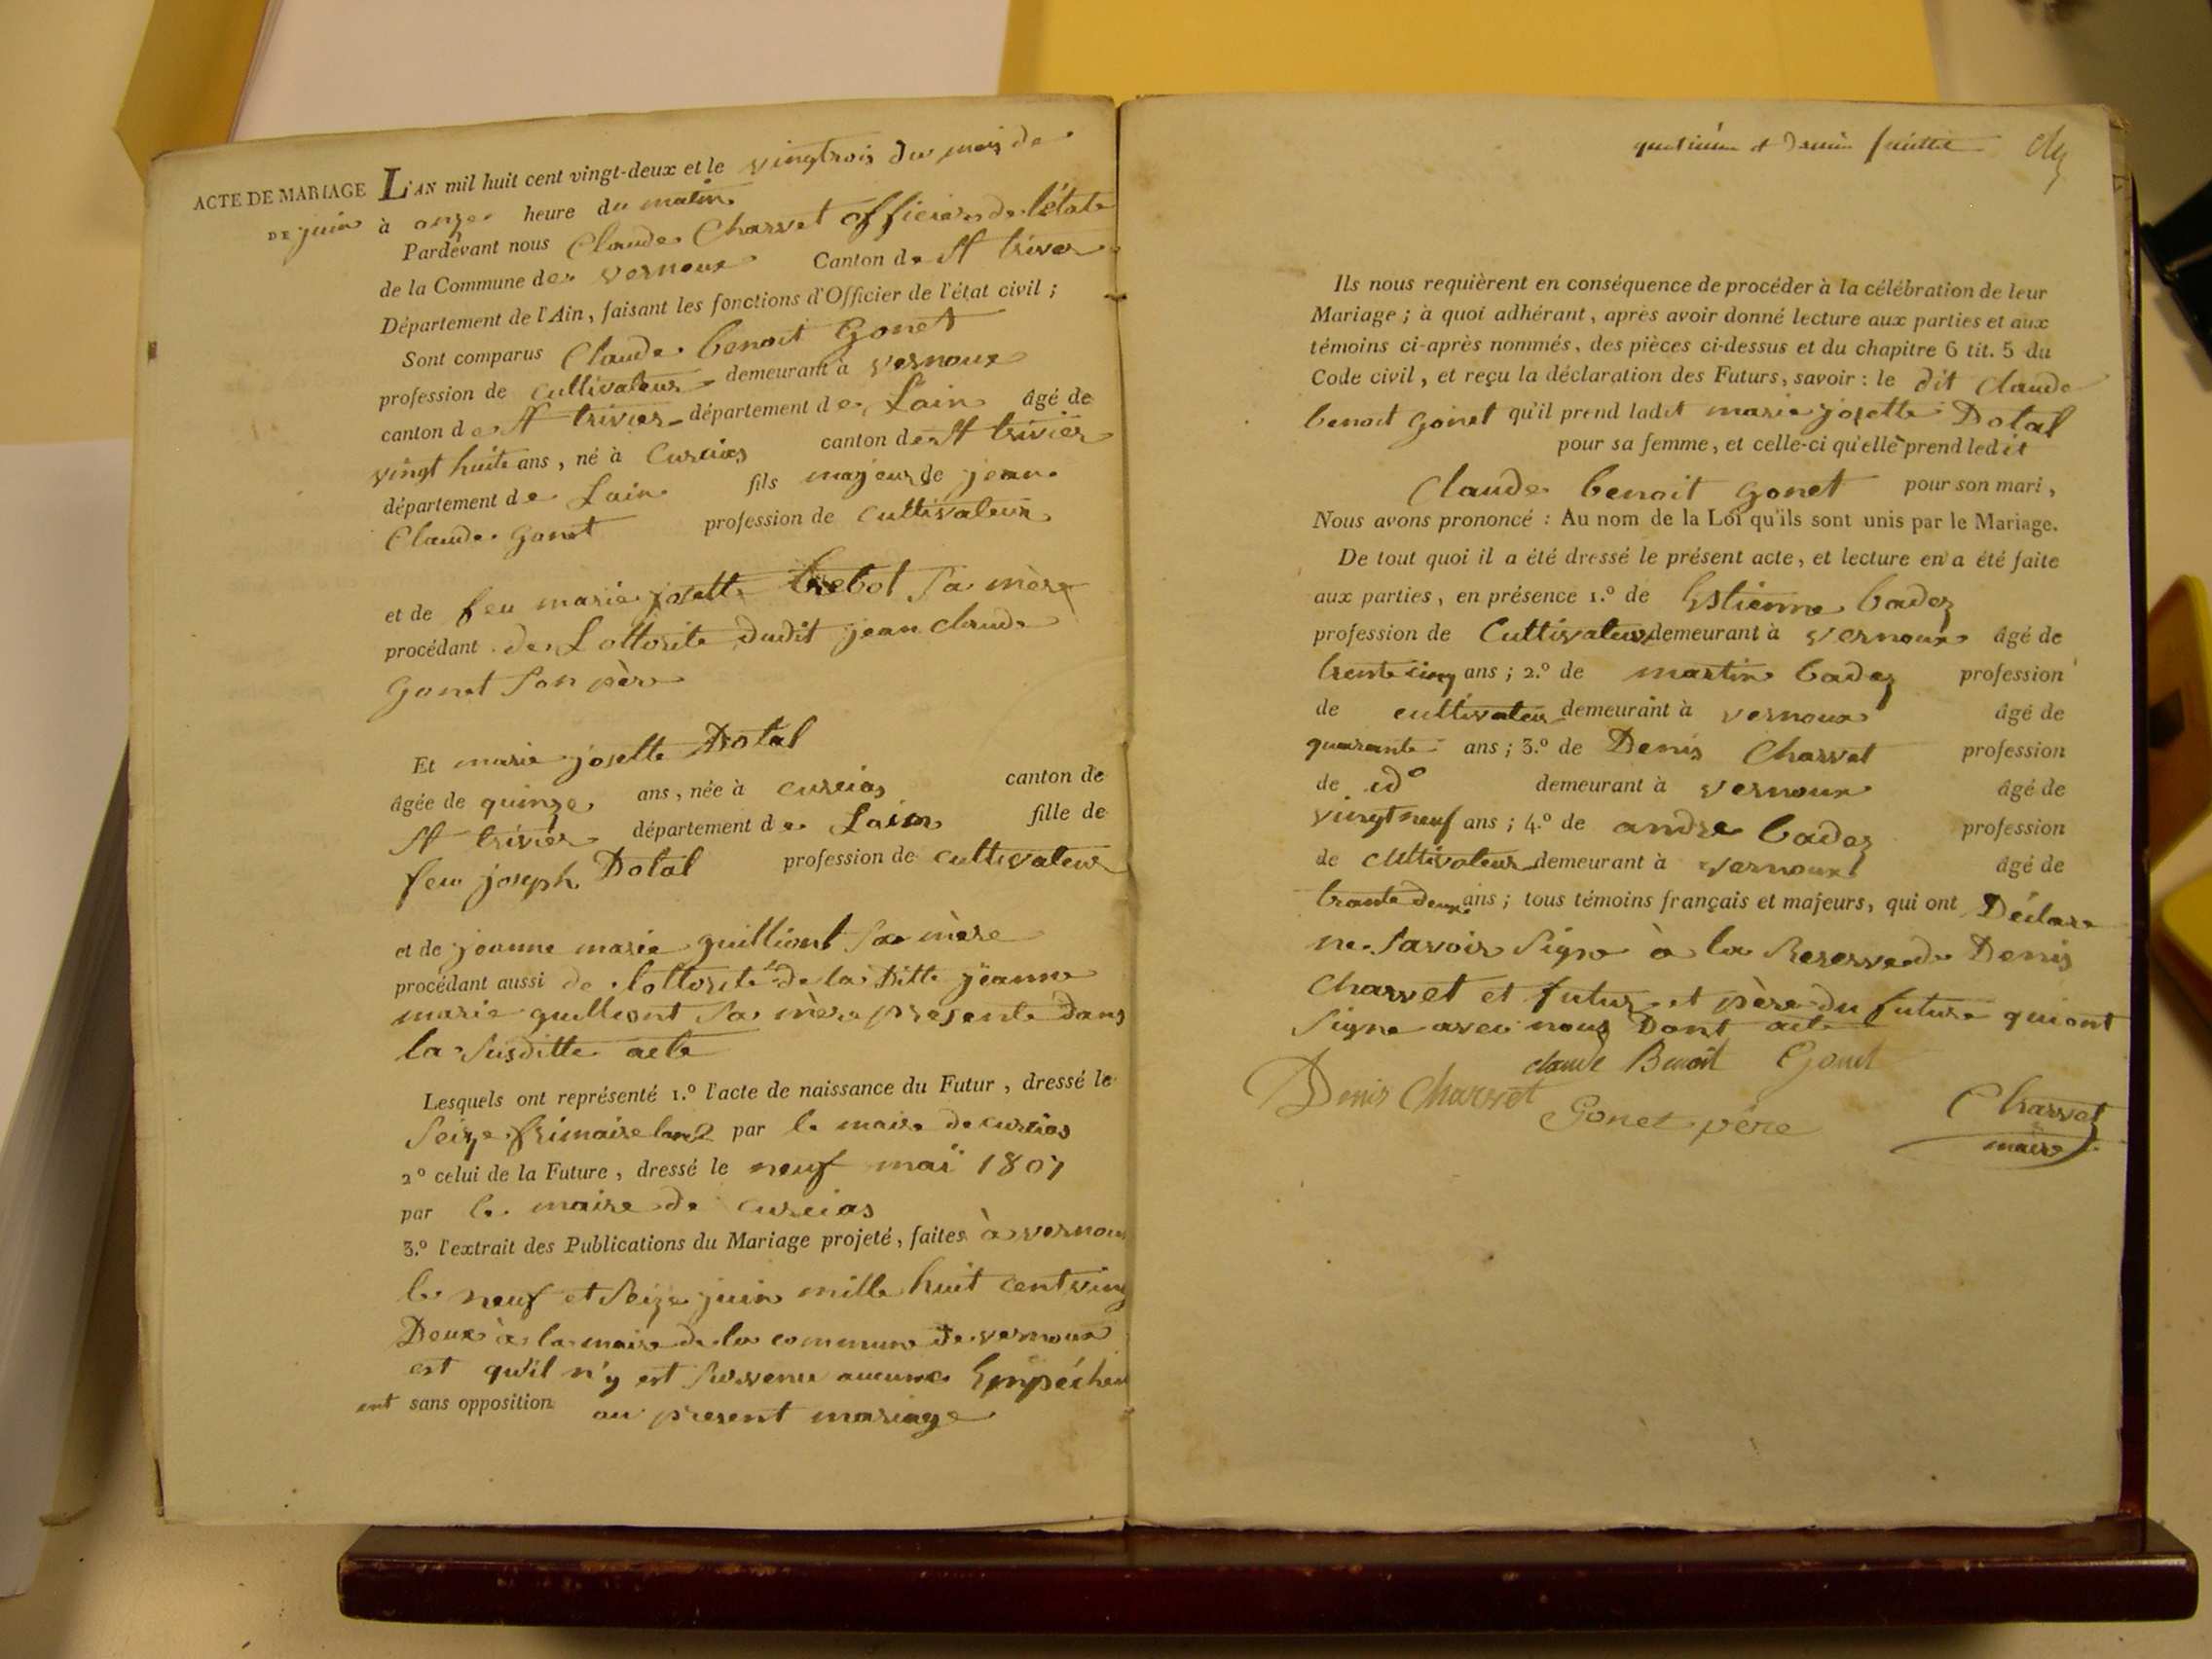 ACTE DE MARIAGE L'AN mil huit cent vingt-deux et le vingtrois du mois de
DE juin à onze heure du matin
Pardevant nous Claude Charvet officier de l'état
de la Commune de vernoux Canton de St trivier
Département de l'Ain, faisant les fonctions d'Officier de l'état civil ;
Sont comparus Claude benoit Gonet
profession de cultivateur demeurant à vernoux
canton de St trivier département de Lain âgé de
vingt huite ans, né à Curcias canton de St trivier
département de Lain fils majeur de jean
Claude Gonet profession de cultivateur
et de feu marie josette trebot sa mère
procédant de Lottorite dudit jean claude
Gonet son père
Et marie josette Dotal
âgée de quinze ans, née à curcias canton de
St trivier département de Lain fille de
feu joseph Dotal profession de cultivateur
et de jeanne marie guilliont sa mère
procédant aussi de lottorité de la ditte jeanne
marie guilliont sa mère presente dans
la susditte acte
Lesquels ont représenté 1.º l'acte de naissance du Futur, dressé le
seize frimaire lan 2 par le maire de curcias
2º celui de la Future, dressé le neuf mai 1807
par le maire de curcias
3.º l'extrait des Publications du Mariage projeté, faites à vernoux
le neuf et seize juin mille huit cent ving
Deux à la maire de la commune de vernoux
est qu'il n'y est survenu aucune Empéchem
ent sans opposition au present mariage
et feuillet
Ils nous requièrent en conséquence de procéder à la célébration de leur
Mariage ; à quoi adhérant, après avoir donné lecture aux parties et aux
témoins ci-après nommés, des pièces ci-dessus et du chapitre 6 tit. 5 du
Code civil, et reçu la déclaration des Futurs, savoir : le dit Claude
benoit gonet qu'il prend ladit marie josette Dotal
pour sa femme, et celle-ci qu'elle prend ledit
Claude benoit gonet pour son mari,
Nous avons prononcé : Au nom de la Loi qu'ils sont unis par le Mariage.
De tout quoi il a été dressé le présent acte, et lecture en a été faite
aux parties, en présence 1.º de Estienne badez
profession de Cultivateur demeurant à vernoux âgé de
trente cinq ans ; 2.º de martin badez profession
de cultivateur demeurant à vernoux âgé de
quarante ans ; 3.º de Denis Charvet profession
de idº demeurant à vernoux âgé de
vingt neuf ans ; 4.º de andre badez profession
de cultivateur demeurant à vernoux âgé de
trante deux ans ; tous témoins français et majeurs, qui ont Déclare
ne savoir signe à la Reserve de Denis
Charvet et futur et père du future qui ont
signe avec nous Dont acte
claude Benoit Gonet
Denis Charvet Gonet père Charvet
maire